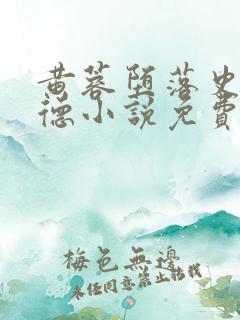 黄蓉堕落史
德小說免費
梅色無邊
未经同意禁止转载